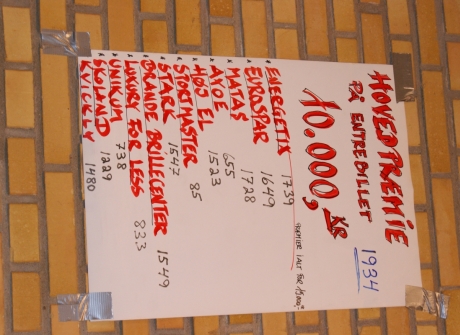 HOVEDPREMIE
PÅ ENTREBILLET 1934
10.000, KR
PRÆMIER I ALT FOR
* ENERGETIX 1739
* EUROSPAR 1649
* MATAS 1728
* ALOE 655
* HØJ EL 1523
* SPORTMASTER 85
* STARK 1547
* BRANDE BRILLECENTER 1549
* LUXURY FOR LESS 833
* UNIKUM 738
* SKOLAND 1229
* KVICKLY 1480